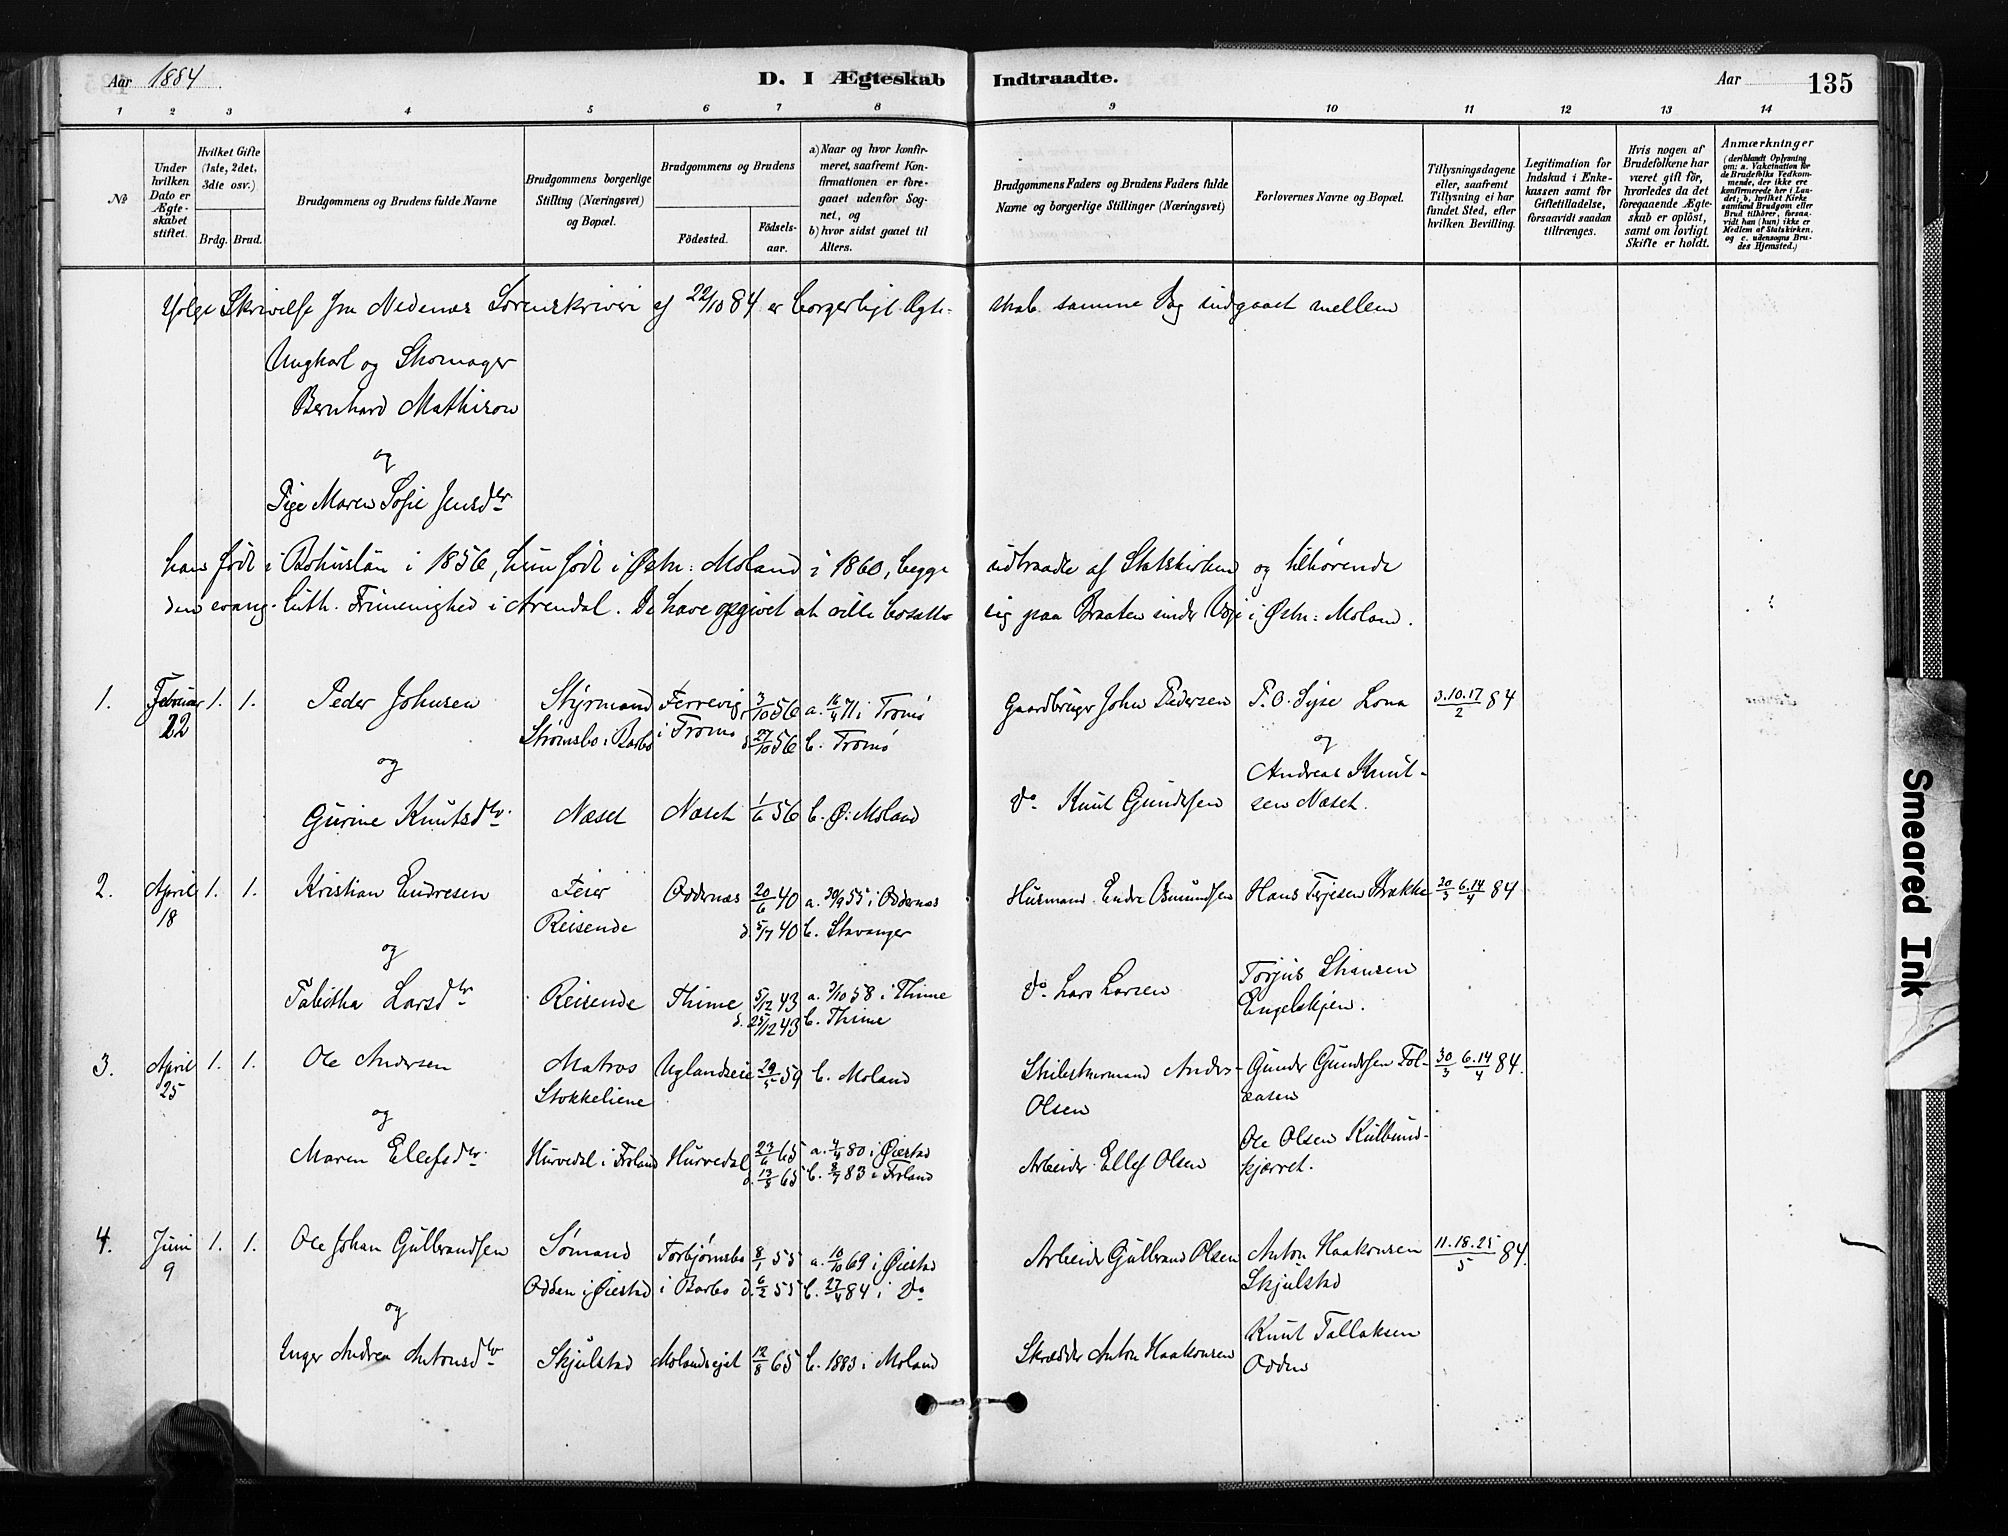 Aar 1884
D. I Ægteskab Indtraadte.
Aar 135
1 2 3 4 5 6 7 8 9 10 11 12 13 14
№
Under hvilken Dato er Ægteskabet stiftet.
Hvilket Gifte (1ste, 2det, 3die osv.)
Brdg. Brud.
Brudgommens og Brudens fulde Navne
Brudgommens borgerlige Stilling (Næringsvei) og Bopæl.
Brudgommens og Brudens
Födested. Födselsaar.
a) Naar og hvor konfirmeret, saafremt Konfirmationen er foregaaet udenfor Sognet, og
b) hvor sidst gaaet til Alters.
Brudgommens Faders og Brudens Faders fulde Navne og borgerlige Stillinger (Næringsvei)
Forlovernes Navne og Bopæl.
Tillysningsdagene eller, saafremt Tillysning ei har fundet Sted, efter hvilken Bevilling.
Legitimation for Indskud i Enkekassen samt for Giftetilladelse, forsaavidt saadan tiltrænges.
Hvis nogen af Brudefolkene har været gift før, hvorledes da det foregaaende Ægteskab er oplöst, samt om lovligt Skifte er holdt.
Anmærkninger (deriblandt Oplysning om: a. Vakcination for de Brudefolks Vedkommende, der ikke ere konfirmerede her i Landet; b. hvilket Kirkesamfund Brudgom eller Brud tilhører, forsaavidt han (hun) ikke er Medlem af Statskirken, og c. udensogns Brudes Hjemsted.)
Ifølge Skrivelse fra Nedenæs Sorenskriveri af 22/10 84 er borgerligt Ægteskab samme Dag indgaaet mellem
Ungkarl og Skomager
Bernhard Mathison
og
Pige Maren Sofie Jensdtr
han født i Bohuslän i 1856, hun født i Østr: Moland i 1860, begge udtraadte af Statskirken og tilhørende
den evang. luth. Frimenighed i Arendal. De have opgivet at ville bosætte sig paa Braaten under i Østr: Moland.
1. Februar 22 1. 1. Peder Johnsen Styrmand Strømsbo i Barbo Færrevig i Tromø 3/10 56 d. 27/10 56 a. 16/4 71 i Tromø b. Tromø Gaardbruger John Pedersen P. O. Syse Lona 3.10.17/2 84
og og
Gurine Knutsdtr. Næset Næset 1/6 56 b. Ø: Moland do Knut Gundersen Andreas Knutsen Næset.
2. April 18 1. 1. Kristian Endresen Feier Reisende Oddernæs 20/6 40 d. 5/7 40 a. 30/9 55 i Oddernæs b. Stavanger Husmand Endre Osmundsen Hans Terjesen Brække 30/3 6.14/4 84
og
Tabitha Larsdtr Reisende Thime 5/12 43 d. 25/12 43 a. 3/10 58 i Thime b. Thime do Lars Larsen Torjus Engelskjen.
3. April 25 1. 1. Ole Andersen Matros Stokkeliene Uglandseie 29/5 59 b. Moland Anders Olsen Gunder Gundersen 30/3 6.14/4 84.
og
Maren Elefsdtr. Hurvedal i Froland Hurvedal 23/6 65 d. 13/8 65 a. 4/4 80 i Øiestad b. 8/7 83 i Froland Arbeider Ellef Olsen Ole Olsen Kulbundkjærret.
4. Juni 9 1. 1. Ole Johan Gulbrandsen Sømand Odden i Øiestad Torbjørnsbo i Barbo 8/1 55 d. 6/2 55 a. 10/10 69 i Øiestad b. 27/4 84 i do Arbeider Gulbrand Olsen Anton Haakonsen Skjulstad 11.18.25/5 84.
og
Inger Andrea Antonsdtr Skjulstad Molandseiet 12/8 65 b. 1883 i Moland Skrædder Anton Haakonsen Knut Tallaksen Odden
Smeared Ink